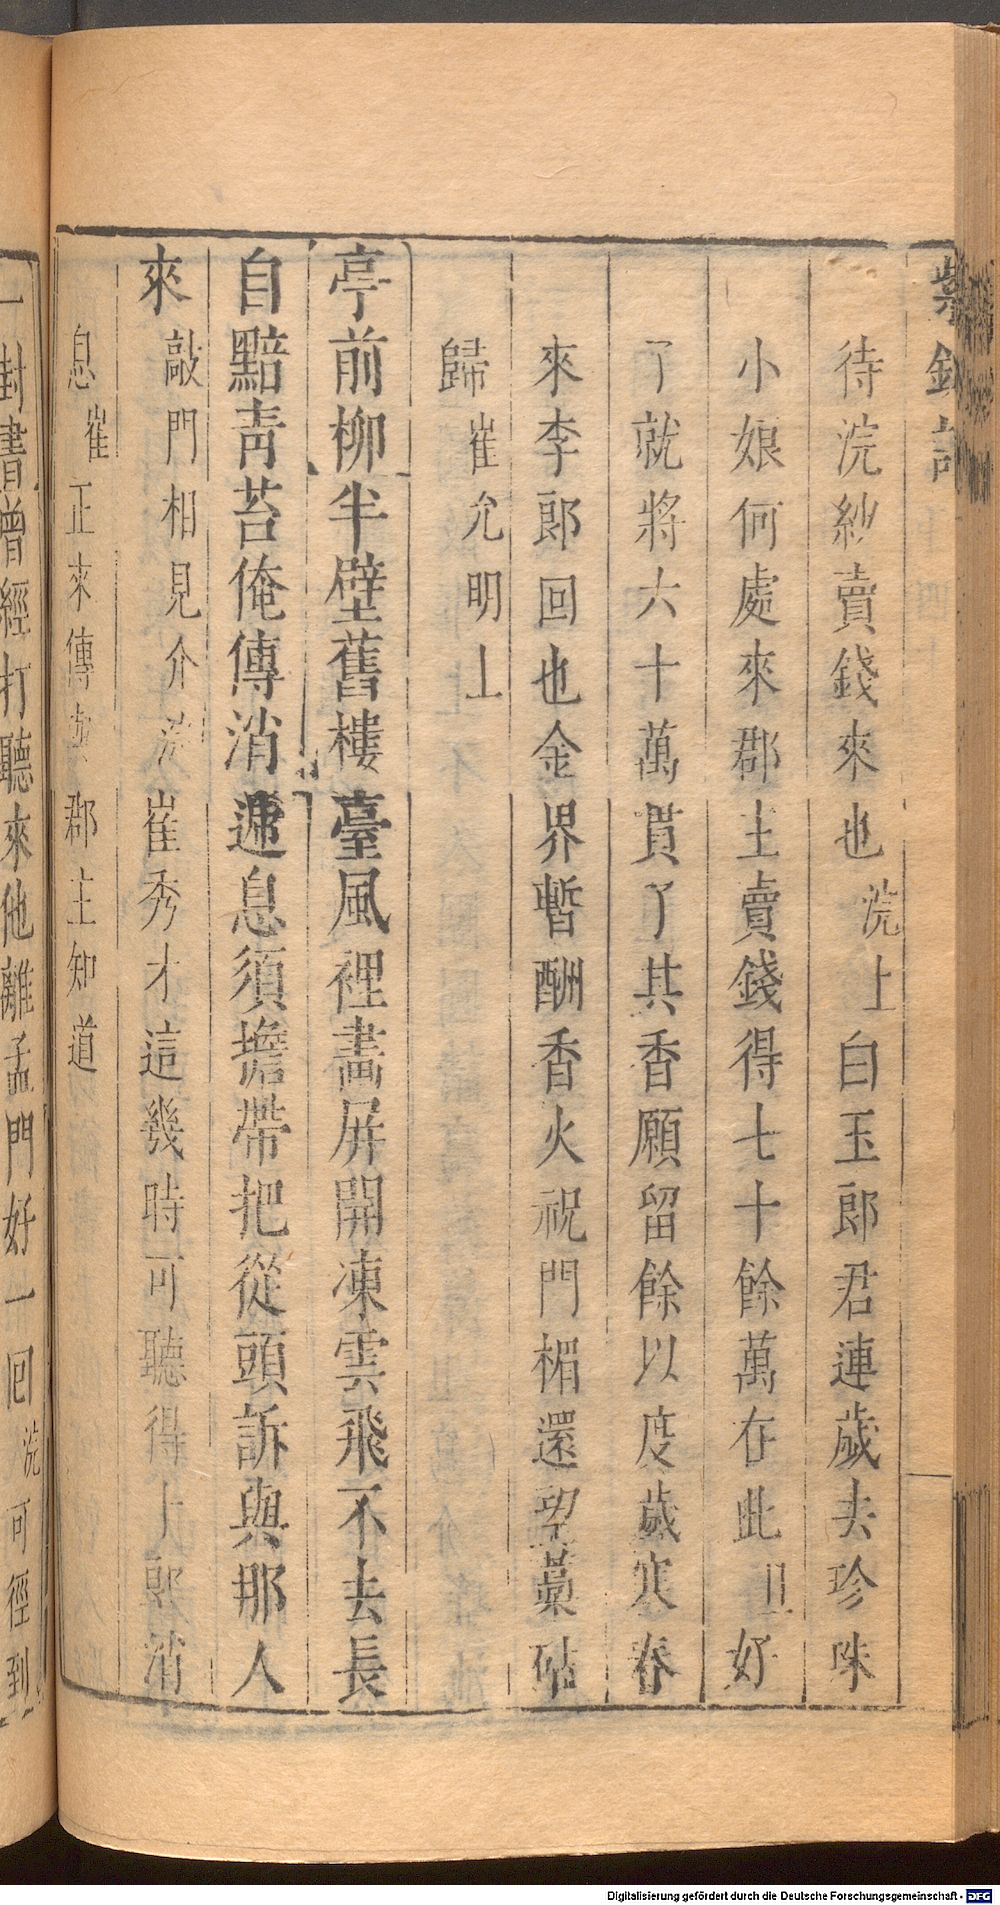 紫釵記
待浣紗賣錢來也浣上白玉郎君連歲去珍珠
小娘何處來郡主賣錢得七十餘萬在此旦好
了就將六十萬貫了其香願留餘以度歲寒春
來李郎回也金界暫酬香火祝門楣還望藁砧
歸崔允明上
亭前柳半壁舊樓臺風裡畫屏開凍雲飛不去長
自黯青苔俺傳消遞息須擔帶把從頭訴與那人
來敲門相見介浣崔秀才這幾時可聽得上郎消
息崔正來傳與郡主知道
一封書曾經打聽來他離孟門好一回浣可徑到
Digitalisierung gefördert durch die Deutsche Forschungsgemeinschaft - DFG